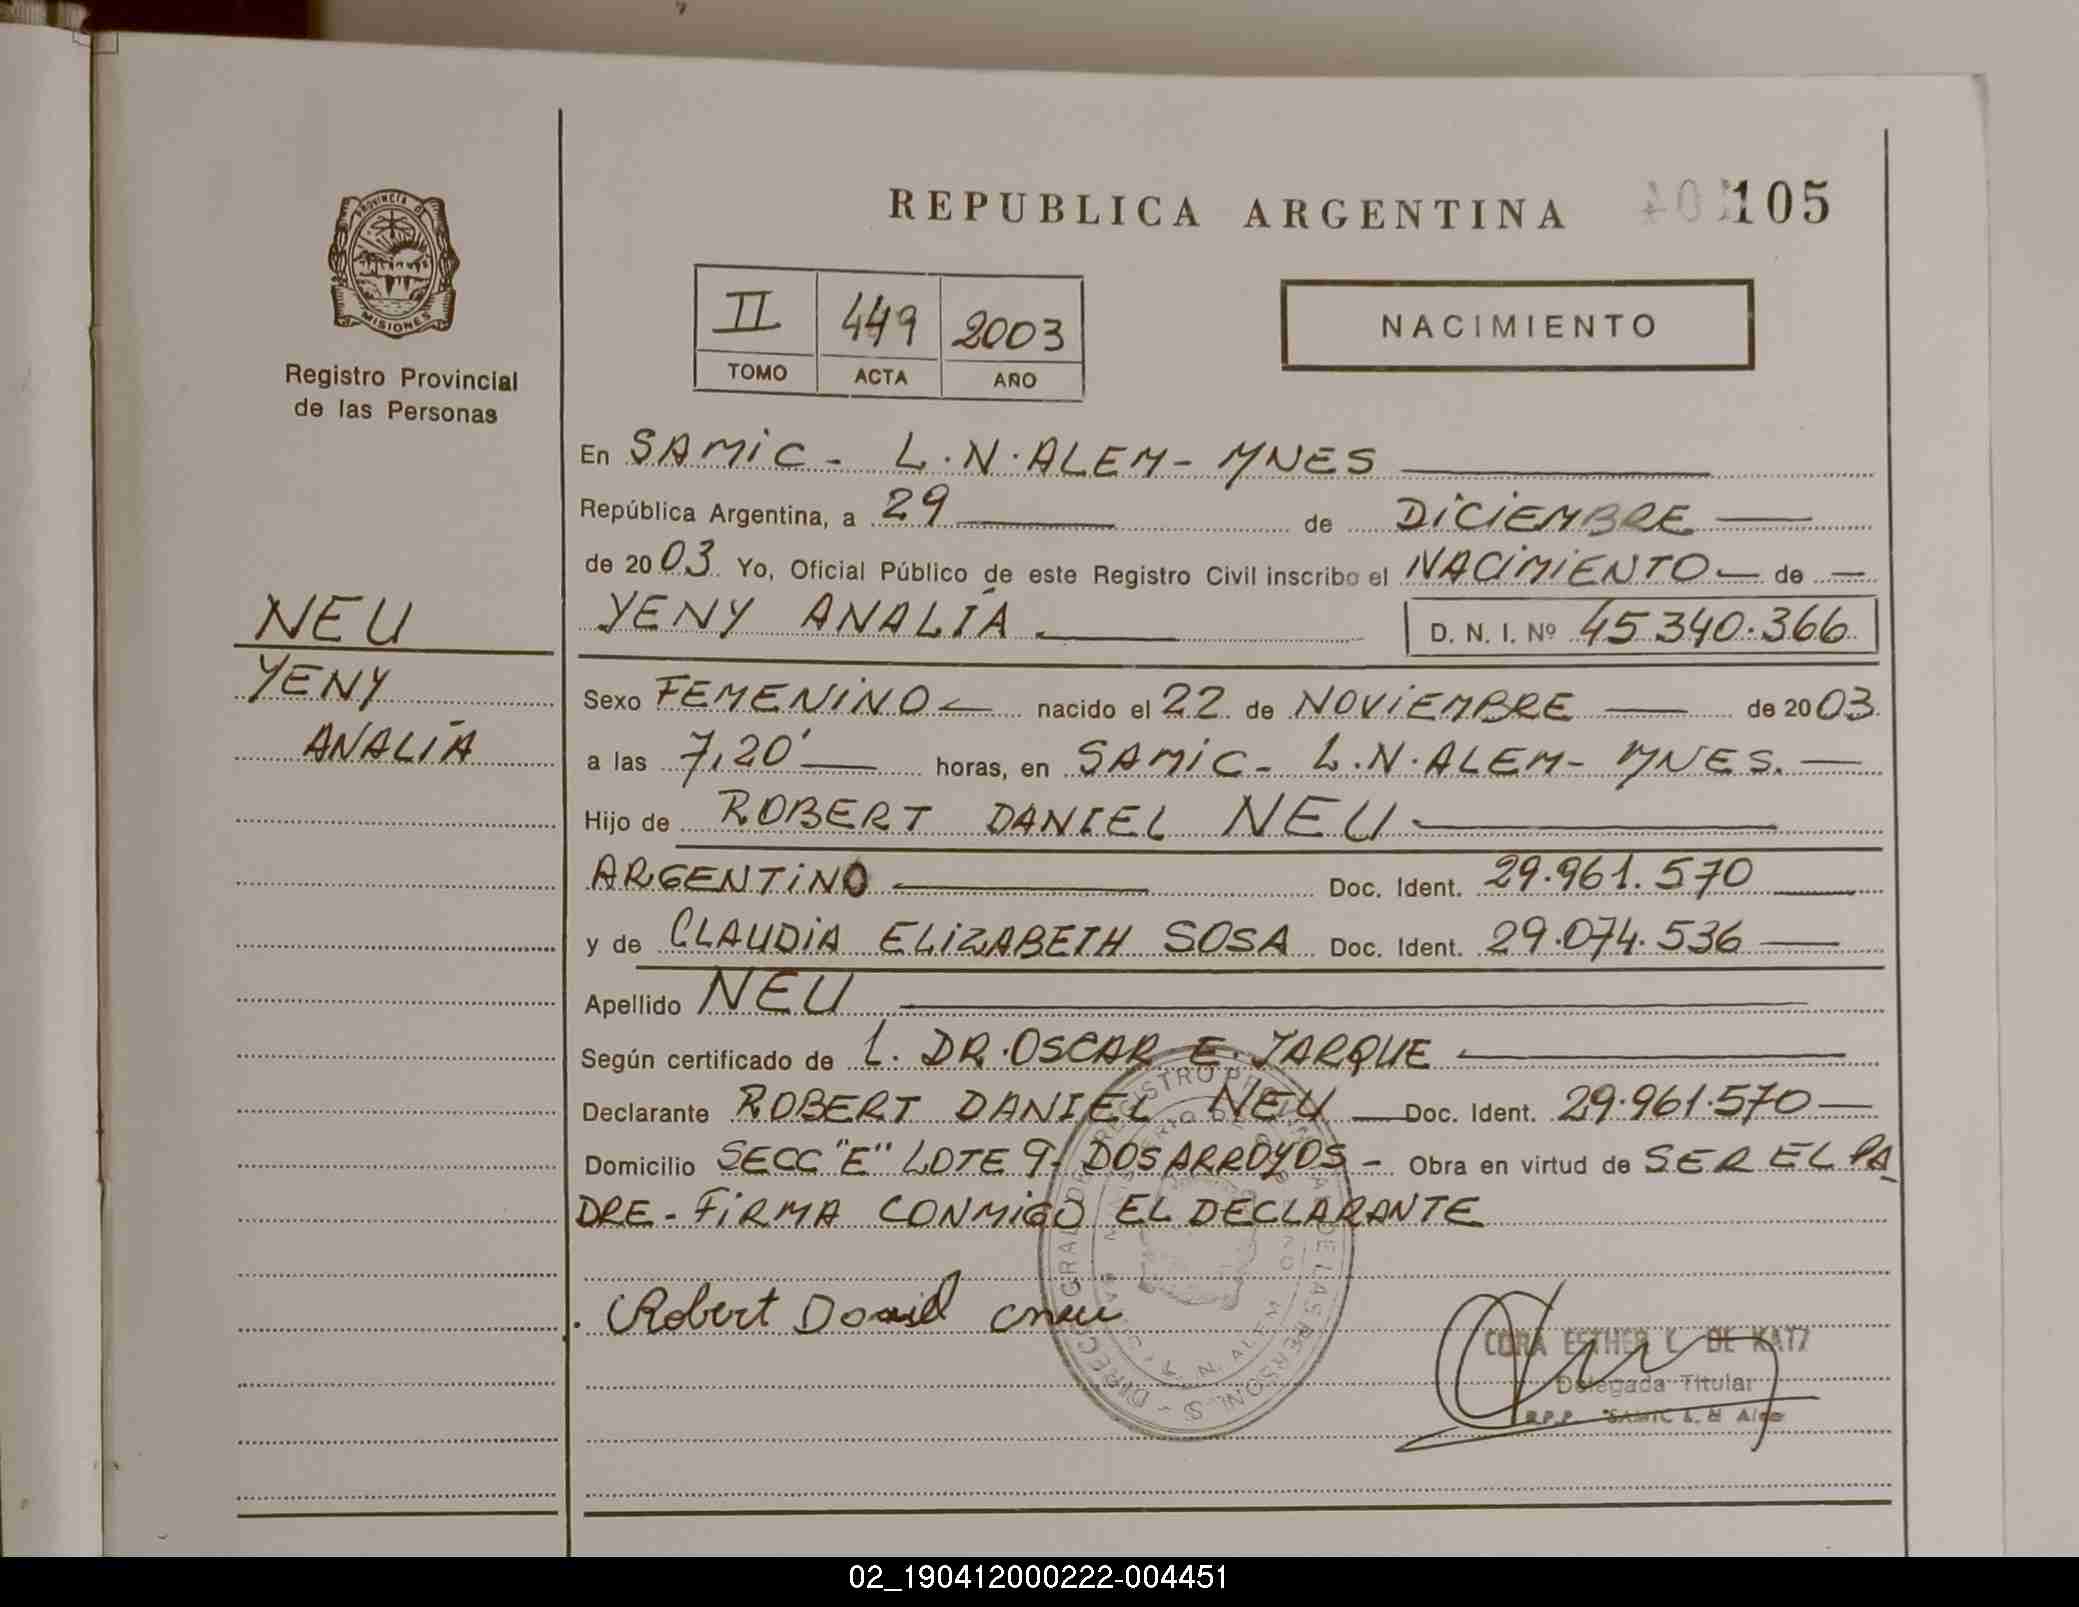 REPUBLICA ARGENTINA 105
PROVINCIA DE
MISIONES
Registro Provincial
de las Personas
II 449 2003
TOMO ACTA AÑO
NACIMIENTO
NEU
YENY
ANALÍA
En SAMIC - L.N.ALEM - MNES
República Argentina, a 29 de DICIEMBRE
de 2003 Yo, Oficial Público de este Registro Civil inscribo el NACIMIENTO de
YENY ANALÍA D. N. I. Nº 45.340.366
Sexo FEMENINO nacido el 22 de NOVIEMBRE de 2003
a las 7,20' horas, en SAMIC - L.N.ALEM - MNES.
Hijo de ROBERT DANIEL NEU
ARGENTINO Doc. Ident. 29.961.570
y de CLAUDIA ELIZABETH SOSA Doc. Ident. 29.074.536
Apellido NEU
Según certificado de L. DR. OSCAR E. TARQUE
Declarante ROBERT DANIEL NEU Doc. Ident. 29.961.570
Domicilio SECC "E" LOTE 9 - DOS ARROYOS - Obra en virtud de SER EL PA
DRE - FIRMA CONMIGO EL DECLARANTE
Robert Daniel Neu
CORA ESTHER L. DE KATZ
Delegada Titular
R.P.P. "SAMIC L. N Alem
02_190412000222-004451